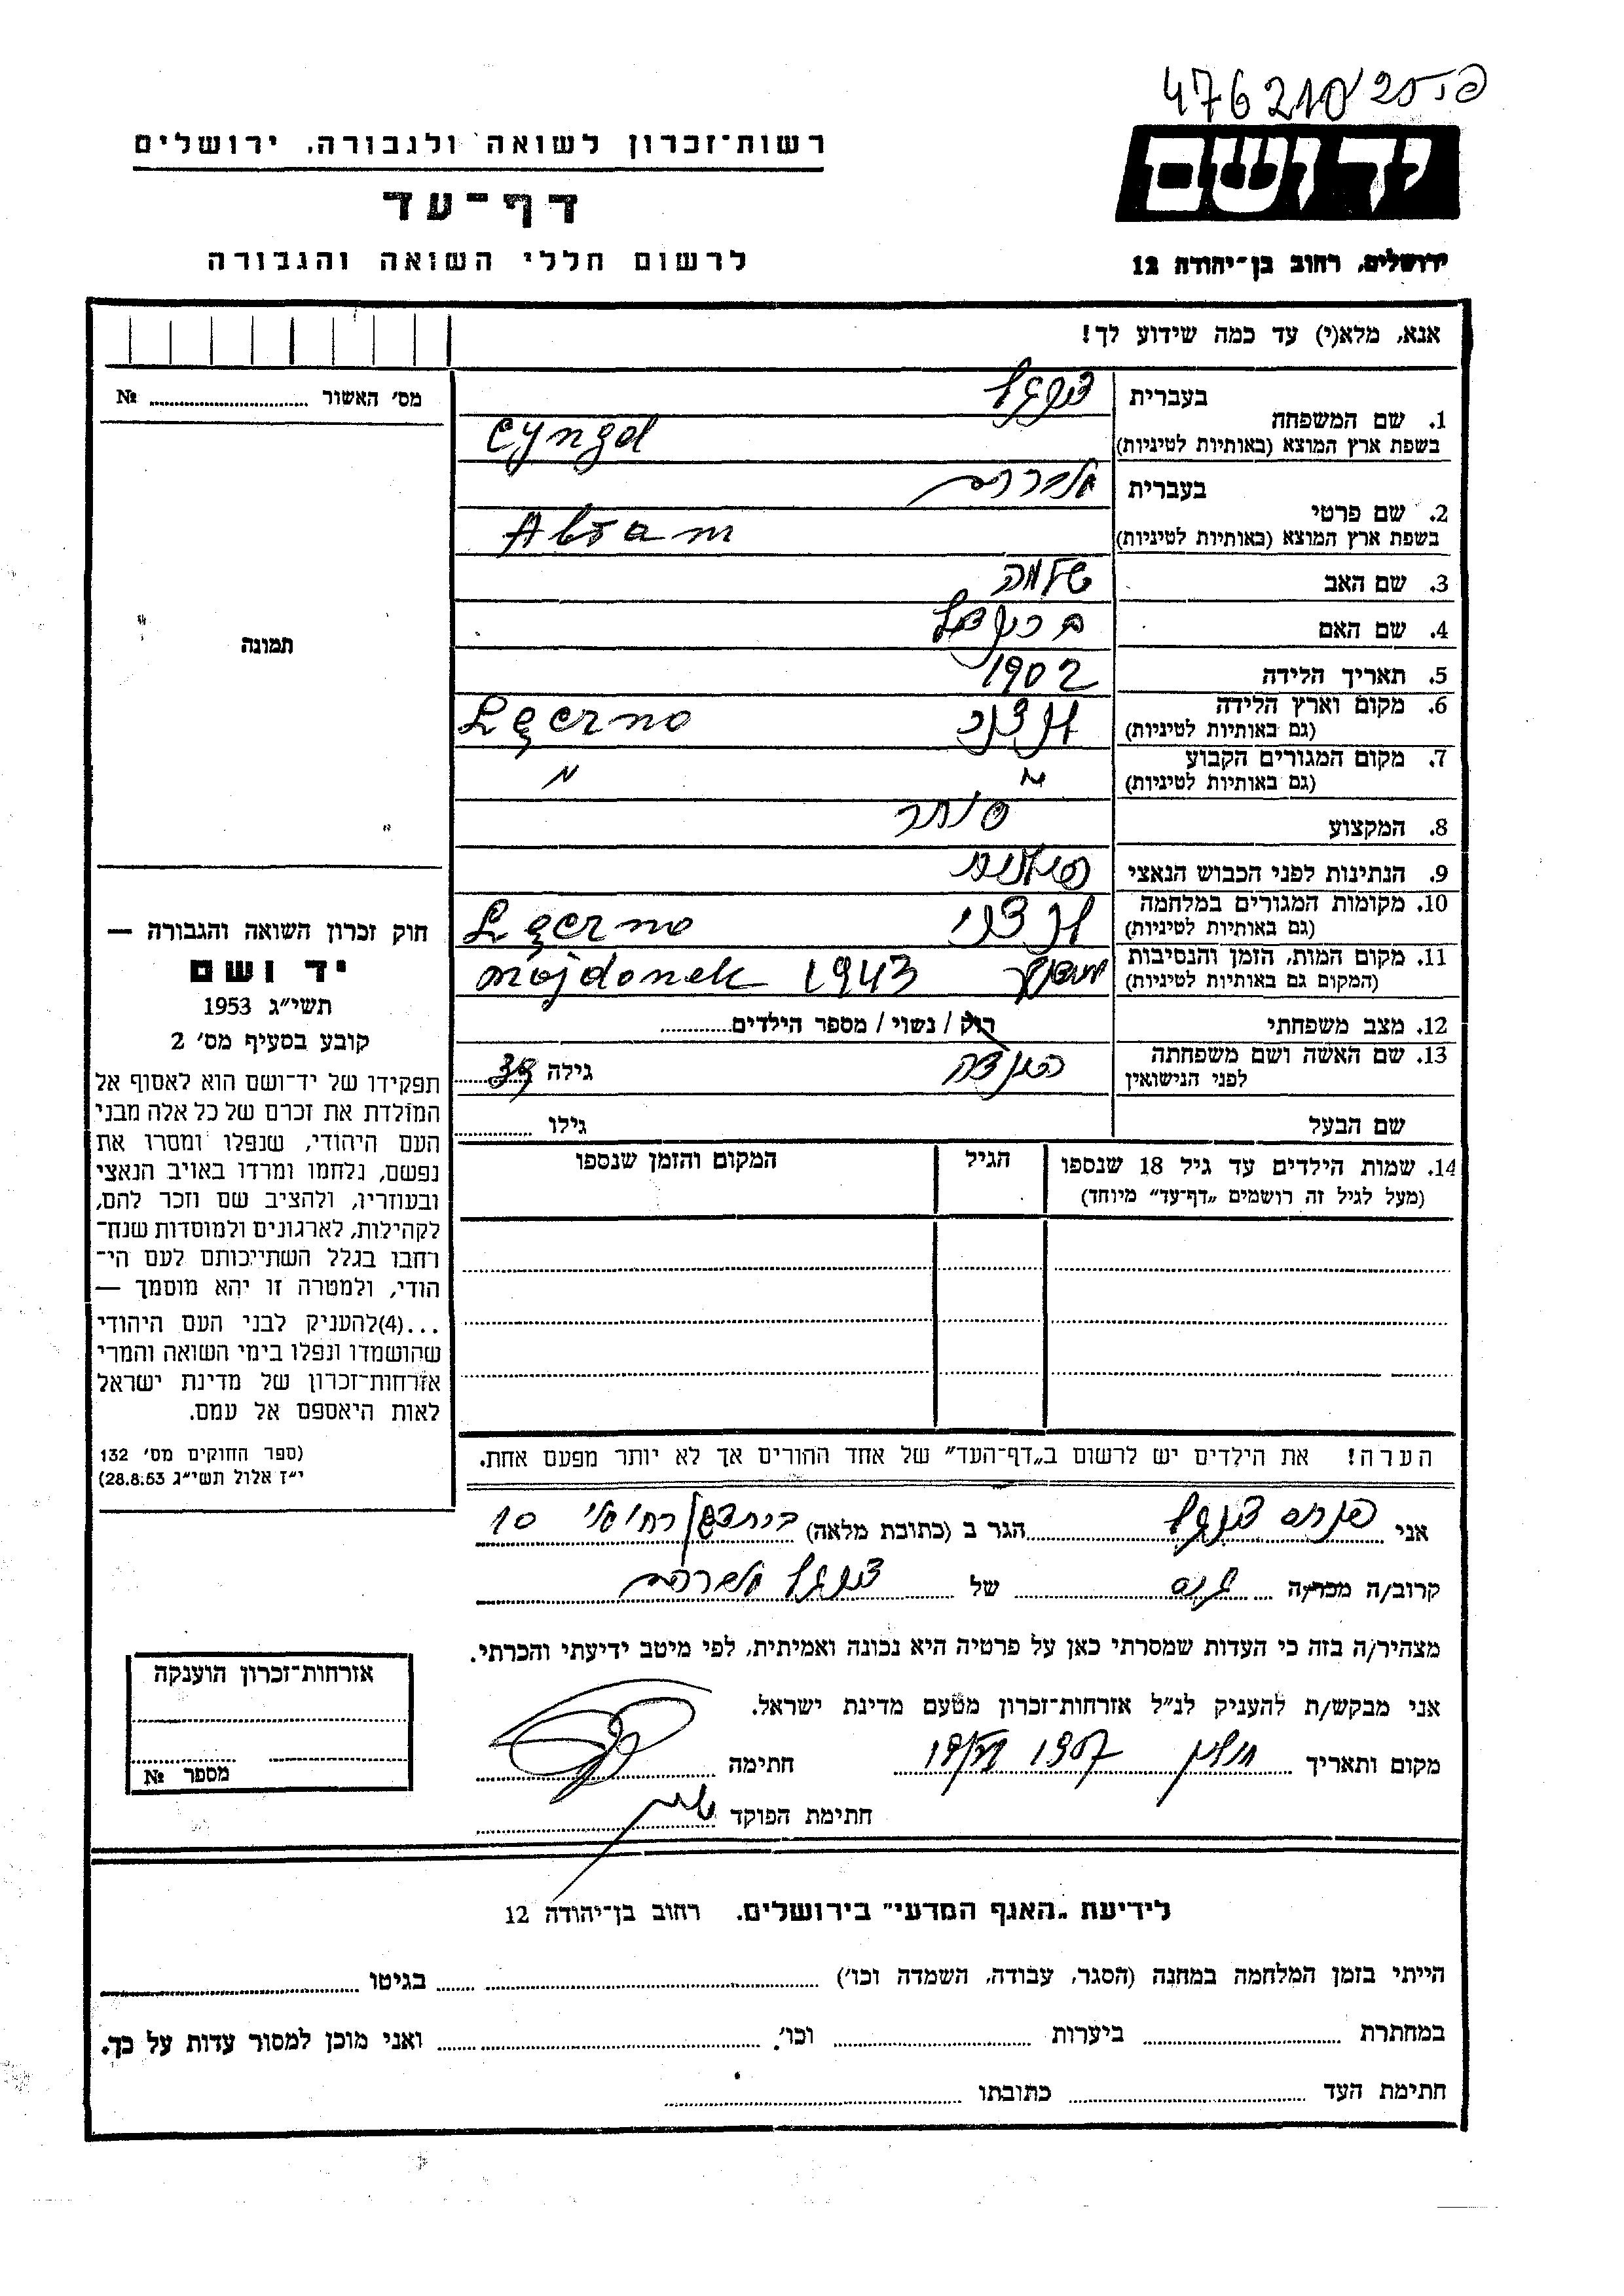 476210/25
רשות־זכרון לשואה ולגבורה, ירושלים
דף־עד
לרשום חללי השואה והגבורה
יד ושם
ירושלים, רחוב בן־יהודה 12
אנא, מלא(י) עד כמה שידוע לך!
מס׳ האשור № 
תמונה
1. שם המשפחה
בעברית צינגל
בשפת ארץ המוצא (באותיות לטיניות) Cyngel
2. שם פרטי
בעברית אברהם
בשפת ארץ המוצא (באותיות לטיניות) Abram
3. שם האב שלמה
4. שם האם
5. תאריך הלידה 1902
6. מקום וארץ הלידה Łęczno
(גם באותיות לטיניות)
7. מקום המגורים הקבוע " "
(גם באותיות לטיניות)
8. המקצוע סוחר
9. הנתינות לפני הכבוש הנאצי פולנית
10. מקומות המגורים במלחמה Łęczno
(גם באותיות לטיניות)
11. מקום המות, הזמן והנסיבות מיידנק 1943 Majdanek
(המקום גם באותיות לטיניות)
12. מצב משפחתי רוק / נשוי / מספר הילדים
13. שם האשה ושם משפחתה גילה
לפני הנישואין
שם הבעל גילו
14. שמות הילדים עד גיל 18 שנספו הגיל המקום והזמן שנספו
(מעל לגיל זה רושמים „דף־עד״ מיוחד)
הערה! את הילדים יש לרשום ב„דף־העד״ של אחד ההורים אך לא יותר מפעם אחת.
חוק זכרון השואה והגבורה —
יד ושם
תשי״ג 1953
קובע בסעיף מס׳ 2
תפקידו של יד־ושם הוא לאסוף אל
המולדת את זכרם של כל אלה מבני
העם היהודי, שנפלו ומסרו את
נפשם, נלחמו ומרדו באויב הנאצי
ובעוזריו, ולהציב שם וזכר להם,
לקהילות, לארגונים ולמוסדות שנח־
רבו בגלל השתייכותם לעם הי־
הודי, ולמטרה זו יהא מוסמך —
...(4)להעניק לבני העם היהודי
שהושמדו ונפלו בימי השואה והמרי
אזרחות־זכרון של מדינת ישראל
לאות היאספם אל עמם.
(ספר החוקים מס׳ 132
י״ז אלול תשי״ג 28.8.53)
אני פנחס צינגל הגר ב (כתובת מלאה) 10
קרוב/ה מכר/ה של צינגל אברהם
מצהיר/ה בזה כי העדות שמסרתי כאן על פרטיה היא נכונה ואמיתית, לפי מיטב ידיעתי והכרתי.
אני מבקש/ת להעניק לנ״ל אזרחות־זכרון מטעם מדינת ישראל.
מקום ותאריך חולון חתימה
חתימת הפוקד
אזרחות־זכרון הוענקה
מספר №
לידיעת „האגף המדעי״ בירושלים. רחוב בן־יהודה 12
הייתי בזמן המלחמה במחנה (הסגר, עבודה, השמדה וכו׳) בגיטו
במחתרת ביערות וכו׳. ואני מוכן למסור עדות על כך.
חתימת העד כתובתו